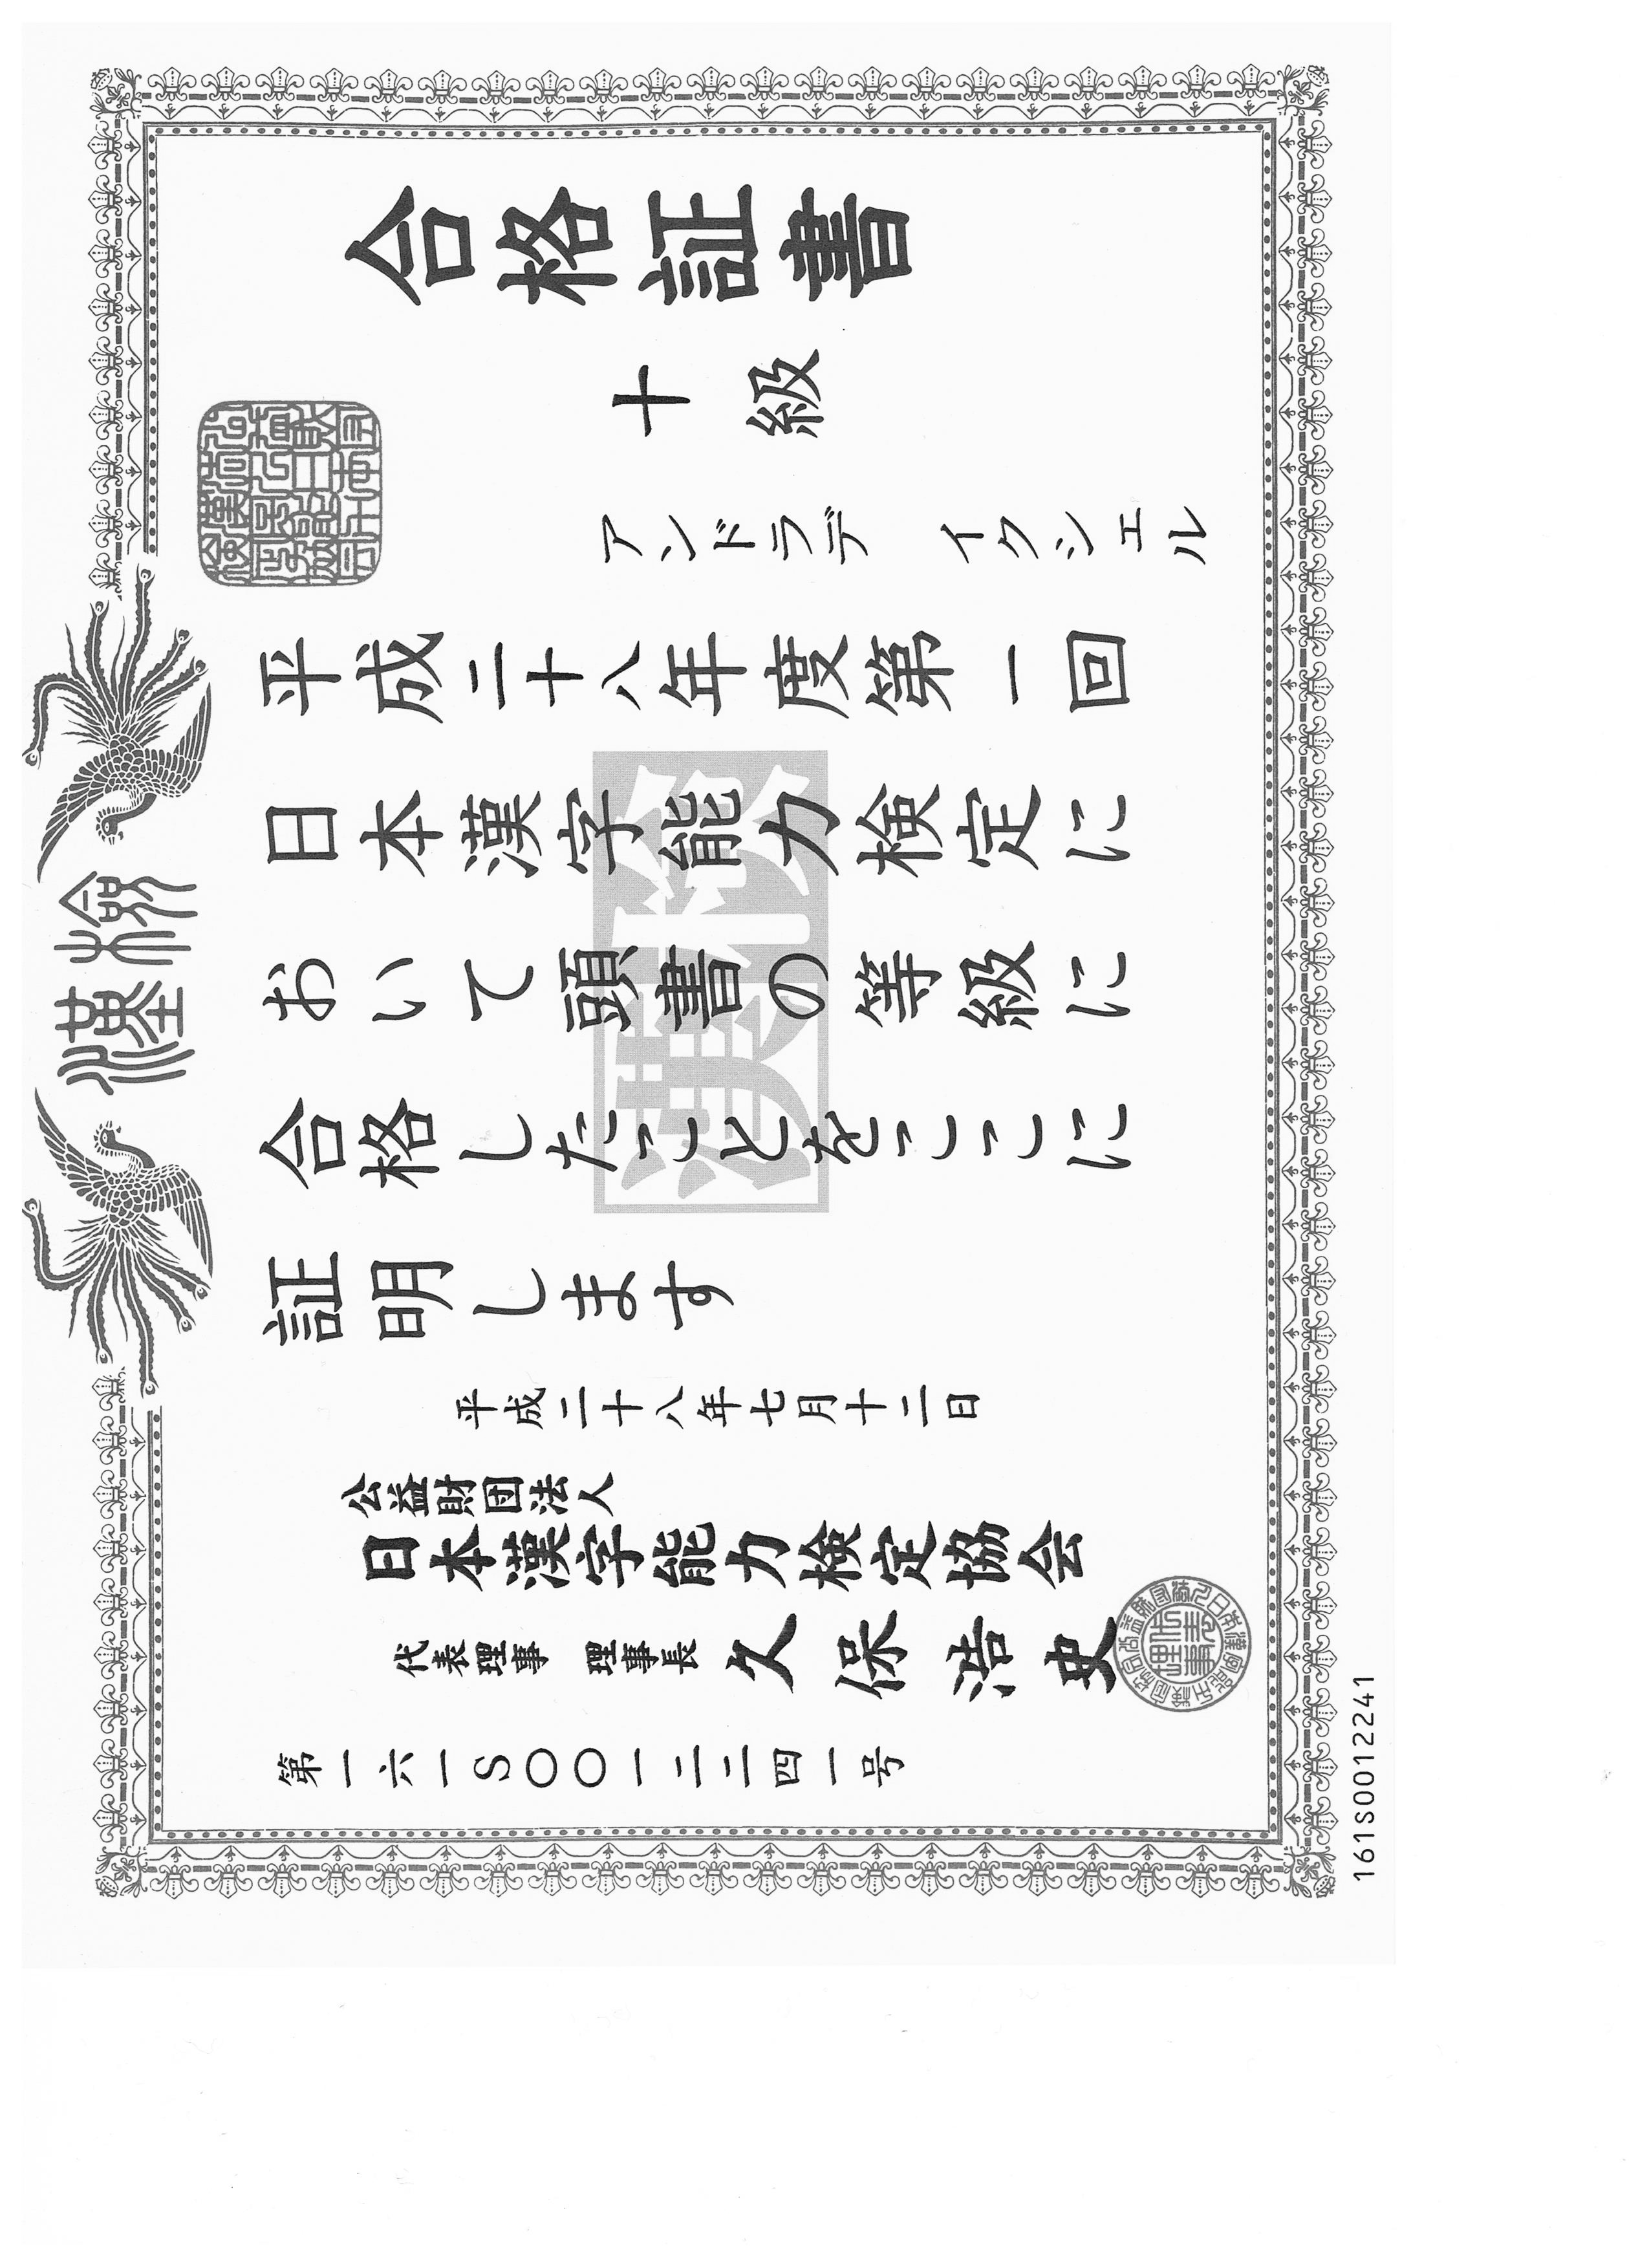 漢検
合格証書
十級
アンドラデ　イクシェル
平成二十八年度第一回
日本漢字能力検定に
おいて頭書の等級に
合格したことをここに
証明します
平成二十八年七月十二日
公益財団法人
日本漢字能力検定協会
代表理事　理事長　久保浩史
第一六一S〇〇一二二四一号
漢検
161S0012241